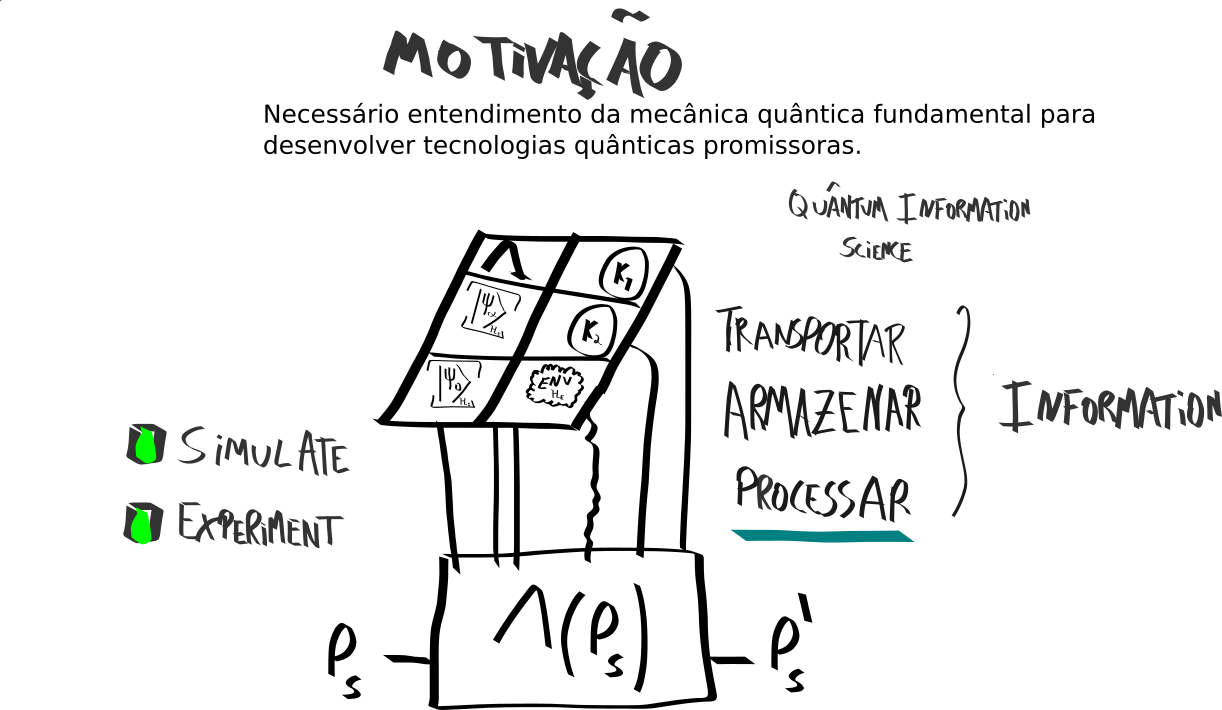 MOTIVAÇÃO
Necessário entendimento da mecânica quântica fundamental para
desenvolver tecnologias quânticas promissoras.
QUÂNTUM INFORMATION
SCIENCE
Λ
K₁
|Ψ
K₂
|Ψ
ENV
H_E
TRANSPORTAR
ARMAZENAR
PROCESSAR
INFORMATION
SIMULATE
EXPERIMENT
ρ_s
Λ(ρ_s)
ρ'_s